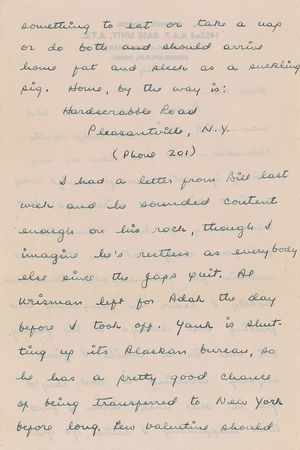 something to eat or take a nap
or do both and should arrive
home fat and sleek as a suckling
pig. Home, by the way is:
Hardscrabble Road
Pleasantville, N.Y.
(Phone 201)
I had a letter from Bill last
week and he sounded content
enough on his rock, though I
imagine he's restless as everybody
else since the Japs quit. Al
Weisman left for Adak the day
before I took off. Yank is shut-
ting up its Alaskan bureau, so
he has a pretty good chance
of being transferred to New York
before long. Lew Valentine should